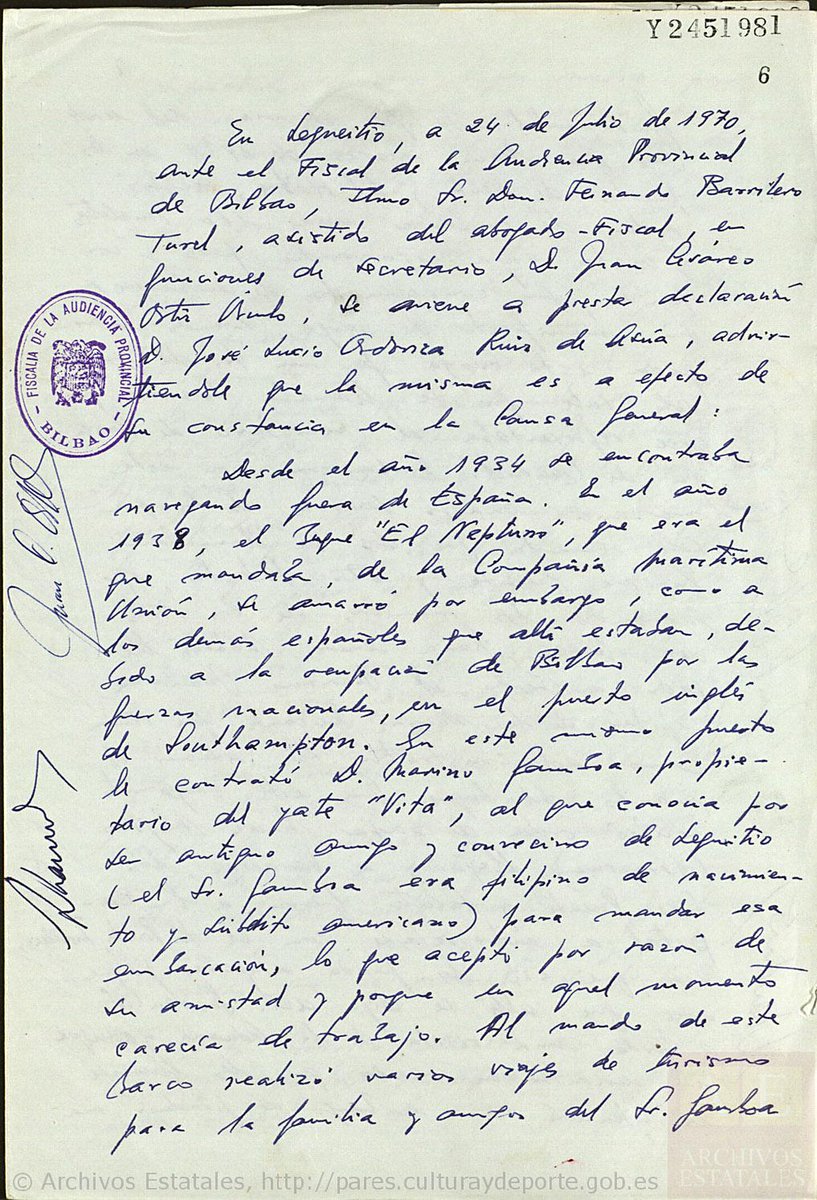 Y2451981
6
En Lequeitio, a 24 de Julio de 1970,
ante el Fiscal de la Audiencia Provincial
de Bilbao, Ilmo Sr. Don Fernando Barrilero
Turel, asistido del abogado-Fiscal, en
funciones de secretario, D. Juan Cesáreo
Ortiz, se aviene a prestar declaración
D. José Lucio Ordorica Ruiz de Asúa, advir-
tiendole que la misma es a efecto de
su constancia en la Causa General:
Desde el año 1934 se encontraba
navegando fuera de España. En el año
1938, el Buque "El Neptuno", que era el
que mandaba, de la Compañía Marítima
Unión, se amarró por embargo, como a
los demás españoles que allí estaban, de-
bido a la ocupación de Bilbao por las
fuerzas nacionales, en el puerto inglés
de Southampton. En este mismo puerto
le contrató D. Marino Gamboa, propie-
tario del yate "Vita", al que conocía por
ser antiguo amigo y convecino de Lequeitio
(el Sr. Gamboa era filipino de nacimien-
to y súbdito americano) para mandar esa
embarcación, lo que aceptó por razón de
su amistad y porque en aquel momento
carecía de trabajo. Al mando de este
barco realizó varios viajes de turismo
para la familia y amigos del Sr. Gamboa
FISCALIA DE LA AUDIENCIA PROVINCIAL
- BILBAO -
ARCHIVOS
ESTATALES
© Archivos Estatales, http://pares.culturaydeporte.gob.es